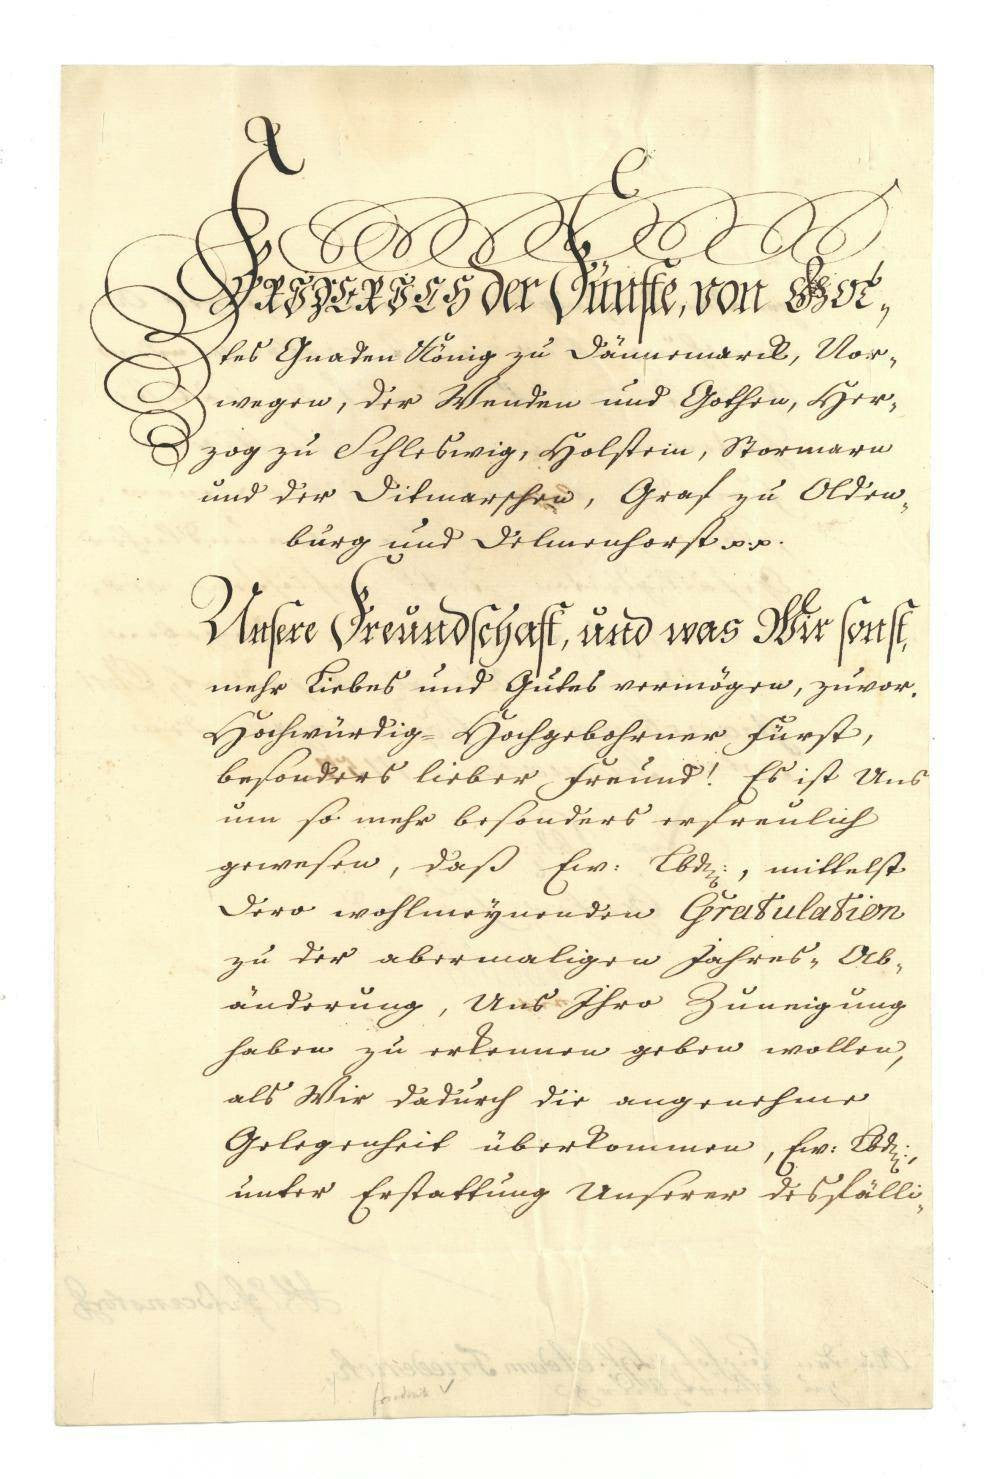 FRIDERICH der Fünfte, von Got„
tes Gnaden König zu Dännemarck, Nor„
wegen, der Wenden und Gothen, Her„
zog zu Schleswig, Holstein, Stormarn
und der Ditmarschen, Graf zu Olden„
burg und Delmenhorst p.p.
Unsere Freundschaft, und was Wir sonst,
mehr Liebes und Gutes vermögen, zuvor.
Hochwürdig= Hochgebohrner Fürst,
besonders lieber Freund! Es ist Uns
um so mehr besonders erfreulich
gewesen, daß Ew: Lbd:, mittelst
Dero wohlmeynenden Gratulation
zu der abermaligen Jahres„ Ab„
änderung, Uns Ihro Zuneigung
haben zu erkennen geben wollen,
als Wir dadurch die angenehme
Gelegenheit überkommen, Ew: Lbd:,
unter Erstattung Unserer desfälli„